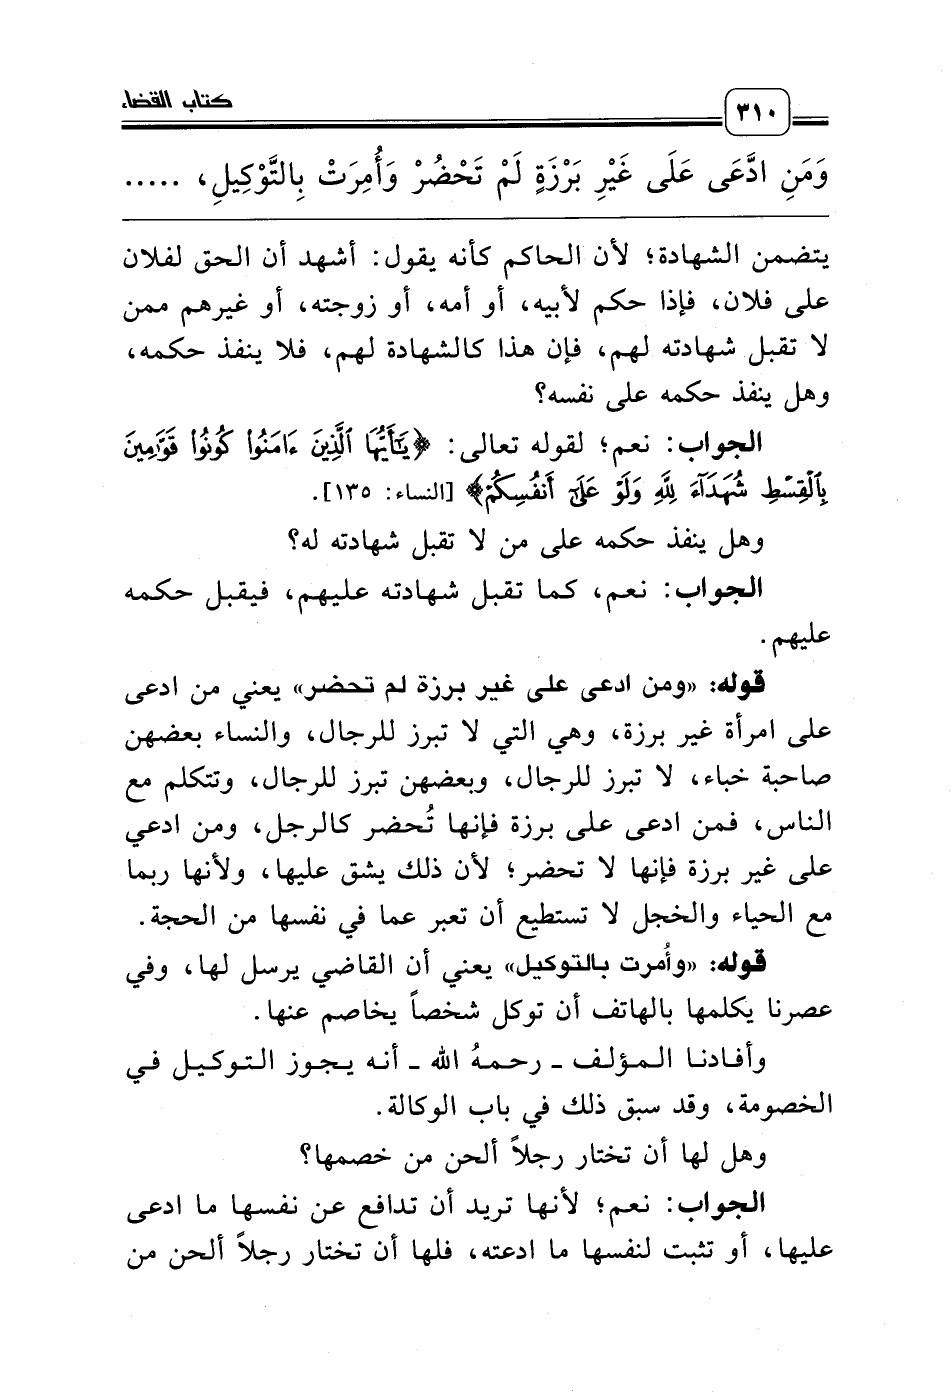 كتاب القضاء
٣١٠
وَمَنِ ادَّعَى عَلَى غَيْرِ بَرْزَةٍ لَمْ تَحْضُرْ وَأُمِرَتْ بِالتَّوْكِيلِ، .....
يتضمن الشهادة؛ لأن الحاكم كأنه يقول: أشهد أن الحق لفلان
على فلان، فإذا حكم لأبيه، أو أمه، أو زوجته، أو غيرهم ممن
لا تقبل شهادته لهم، فإن هذا كالشهادة لهم، فلا ينفذ حكمه،
وهل ينفذ حكمه على نفسه؟
الجواب: نعم؛ لقوله تعالى: ﴿يَٰٓأَيُّهَا ٱلَّذِينَ ءَامَنُوا۟ كُونُوا۟ قَوَّٰمِينَ
بِٱلْقِسْطِ شُهَدَآءَ لِلَّهِ وَلَوْ عَلَىٰٓ أَنفُسِكُمْ﴾ [النساء: ١٣٥].
وهل ينفذ حكمه على من لا تقبل شهادته له؟
الجواب: نعم، كما تقبل شهادته عليهم، فيقبل حكمه
عليهم.
قوله: «ومن ادعى على غير برزة لم تحضر» يعني من ادعى
على امرأة غير برزة، وهي التي لا تبرز للرجال، والنساء بعضهن
صاحبة خباء، لا تبرز للرجال، وبعضهن تبرز للرجال، وتتكلم مع
الناس، فمن ادعى على برزة فإنها تُحضر كالرجل، ومن ادعي
على غير برزة فإنها لا تحضر؛ لأن ذلك يشق عليها، ولأنها ربما
مع الحياء والخجل لا تستطيع أن تعبر عما في نفسها من الحجة.
قوله: «وأُمرت بالتوكيل» يعني أن القاضي يرسل لها، وفي
عصرنا يكلمها بالهاتف أن توكل شخصاً يخاصم عنها.
وأفادنا المؤلف ـ رحمهُ الله ـ أنه يجوز التوكيل في
الخصومة، وقد سبق ذلك في باب الوكالة.
وهل لها أن تختار رجلاً ألحن من خصمها؟
الجواب: نعم؛ لأنها تريد أن تدافع عن نفسها ما ادعى
عليها، أو تثبت لنفسها ما ادعته، فلها أن تختار رجلاً ألحن من